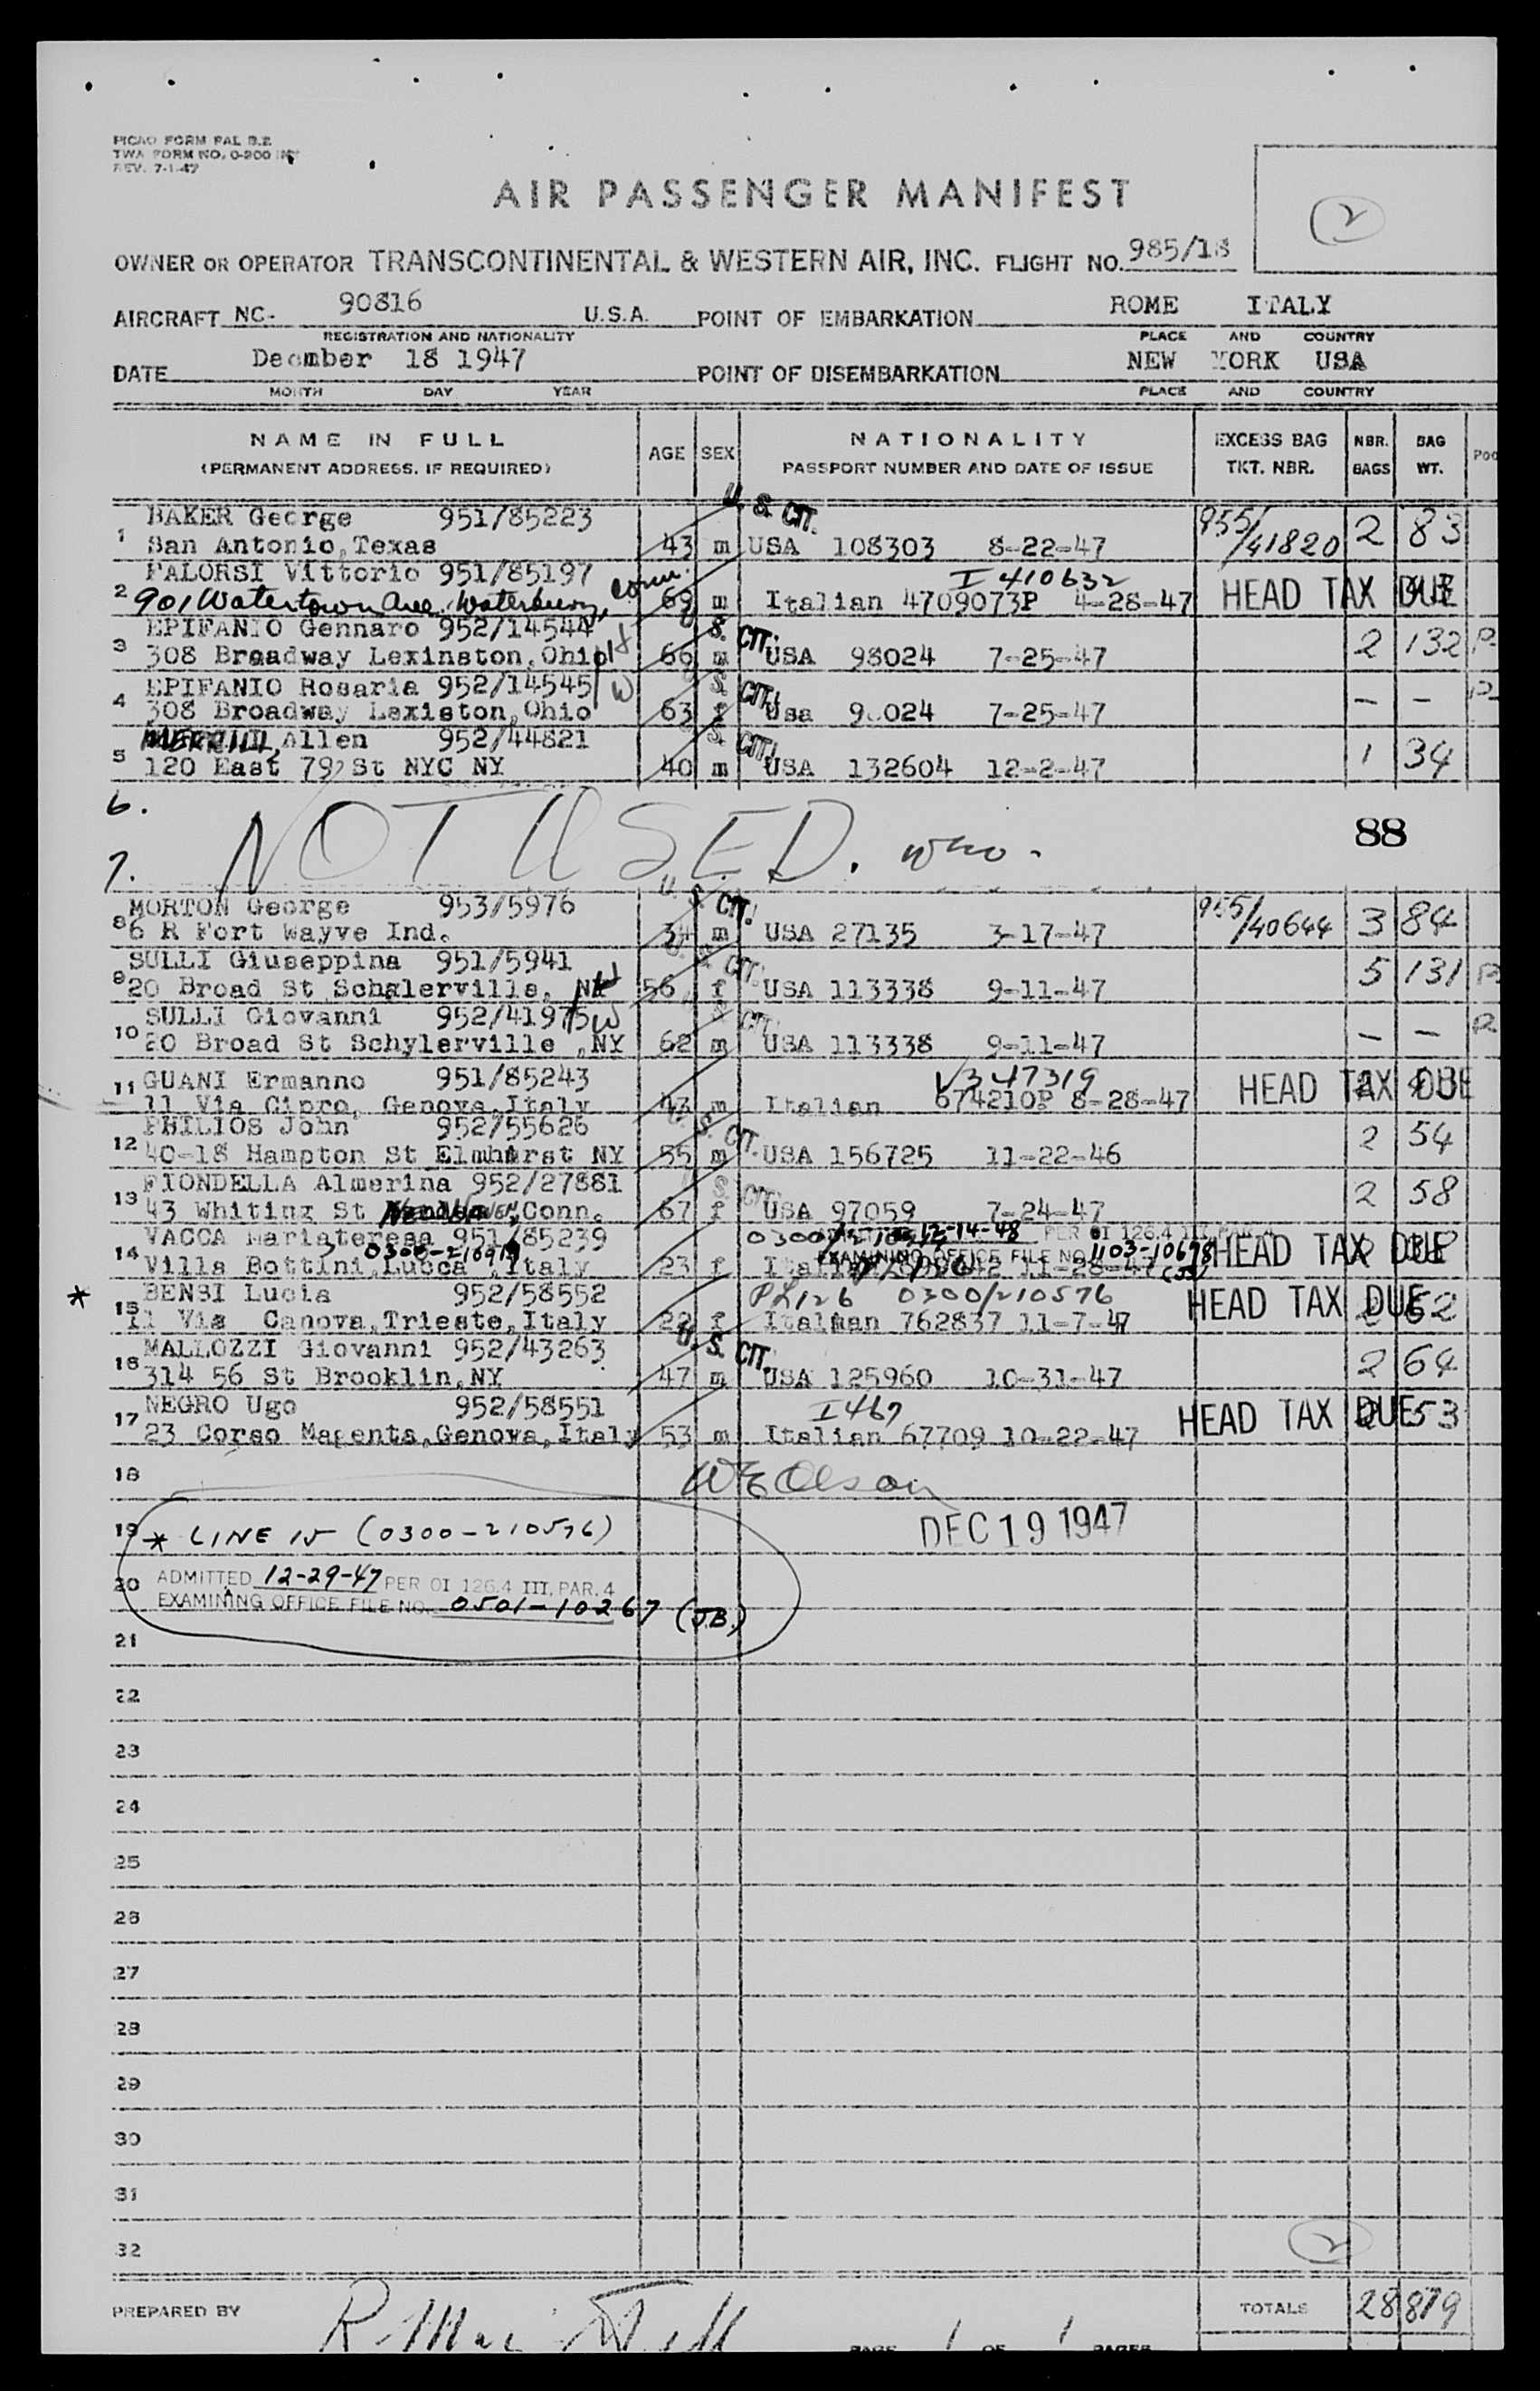 PICAO FORM PAL B.2
TWA FORM NO. 0-200 INT
REV. 7-1-47
AIR PASSENGER MANIFEST
2
OWNER OR OPERATOR TRANSCONTINENTAL & WESTERN AIR, INC. FLIGHT NO. 985/18
AIRCRAFT NC- 90816 U.S.A. POINT OF EMBARKATION ROME ITALY
REGISTRATION AND NATIONALITY PLACE AND COUNTRY
DATE Decmber 18 1947 POINT OF DISEMBARKATION NEW YORK USA
MONTH DAY YEAR PLACE AND COUNTRY
NAME IN FULL AGE SEX NATIONALITY EXCESS BAG NBR. BAG
(PERMANENT ADDRESS, IF REQUIRED) PASSPORT NUMBER AND DATE OF ISSUE TKT. NBR. BAGS WT.
U. S. CIT.
1 BAKER George 951/85223 955/41820 2 83
San Antonio, Texas 43 m USA 108303 8-22-47
2 FALORSI Vittorio 951/85197 I 410632 HEAD TAX DUE
901 Watertown Ave. Waterbury, Conn. 69 m Italian 4709073P 4-28-47
3 EPIFANIO Gennaro 952/14544 H U. S. CIT. 2 132 P
308 Broadway Lexinston, Ohio 66 m USA 98024 7-25-47
4 EPIFANIO Rosaria 952/14545 W S. CIT. - - P
308 Broadway Lexiston, Ohio 63 f Usa 98024 7-25-47
5 MERRILL, Allen 952/44821 S. CIT. 1 34
120 East 79 St NYC NY 40 m USA 132604 12-2-47
6.
7. NOT USED. 88
8 MORTON George 953/5976 U. S. CIT. 955/40644 3 84
6 R Fort Wayve Ind. 34 m USA 27135 3-17-47
9 SULLI Giuseppina 951/5941 H CIT. 5 131 P
20 Broad St Schalerville, NY 56 f USA 113338 9-11-47
10 SULLI Giovanni 952/41975 W S. CIT. - - P
20 Broad St Schylerville ,NY 62 m USA 113338 9-11-47
11 GUANI Ermanno 951/85243 V347319 HEAD TAX DUE
11 Via Cipro, Genova, Italy 43 m Italian 674210P 8-28-47
12 PHILIOS John 952/55626 U. S. CIT. 2 54
40-18 Hampton St Elmhurst NY 55 m USA 156725 11-22-46
13 FIONDELLA Almerina 952/27881 S. CIT. 2 58
43 Whiting St Conn. 67 f USA 97059 7-24-47
14 VACCA Mariateresa 951/85239 12-14-48 PER OI 126.4 III, PAR. 4
EXAMINING OFFICE FILE NO. 1103-10698 HEAD TAX DUE
Villa Bottini, Lucca ,Italy 23 f 11-28-47
* 15 BENSI Lucia 952/58552 PL126 0300/210576 HEAD TAX DUE 2 62
11 Via Canova, Trieste, Italy 22 f Italman 762837 11-7-47
16 MALLOZZI Giovanni 952/43263 U. S. CIT. 2 64
314 56 St Brooklin, NY 47 m USA 125960 10-31-47
17 NEGRO Ugo 952/58551 I467 HEAD TAX DUE 53
23 Corso Magenta, Genova, Italy 53 m Italian 67709 10-22-47
18 WE Olson
19 * LINE 15 (0300-210576) DEC 19 1947
20 ADMITTED 12-29-47 PER OI 126.4 III, PAR. 4
EXAMINING OFFICE FILE NO. 0501-10267 (J.B.)
21
22
23
24
25
26
27
28
29
30
31
32
2
PREPARED BY TOTALS 28 879
PAGE 1 OF 1 PAGES